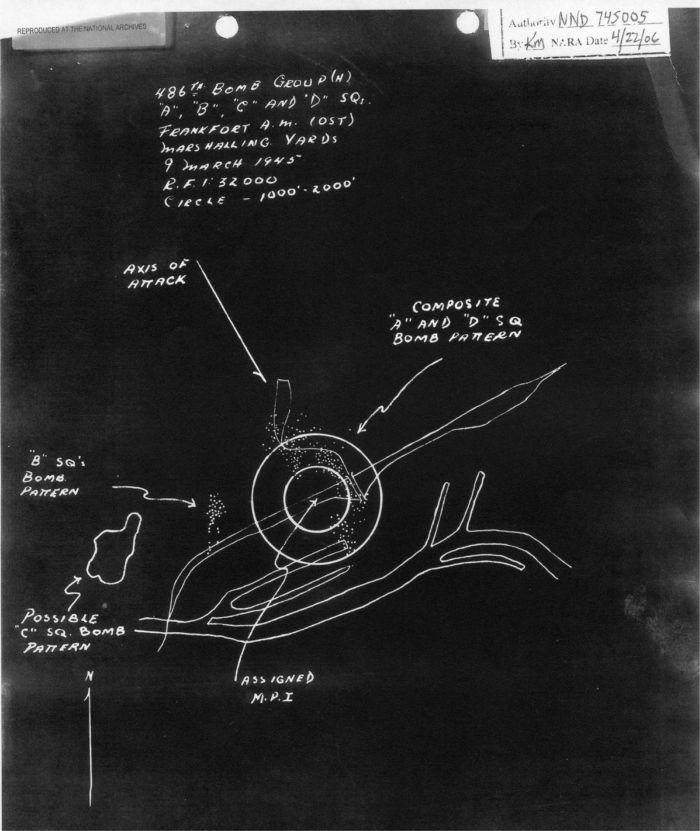 REPRODUCED AT THE NATIONAL ARCHIVES
Authority NND 745005
By KM NARA Date 4/22/06
486TH BOMB GROUP (H)
"A", "B", "C" AND "D" SQs.
FRANKFORT A.M. (OST)
MARSHALLING YARDS
9 MARCH 1945
R.F. 1:32000
CIRCLE - 1000'-2000'
AXIS OF
ATTACK
COMPOSITE
"A" AND "D" SQ
BOMB PATTERN
"B" SQ's
BOMB
PATTERN
POSSIBLE
"C" SQ. BOMB
PATTERN
N
ASSIGNED
M.P.I